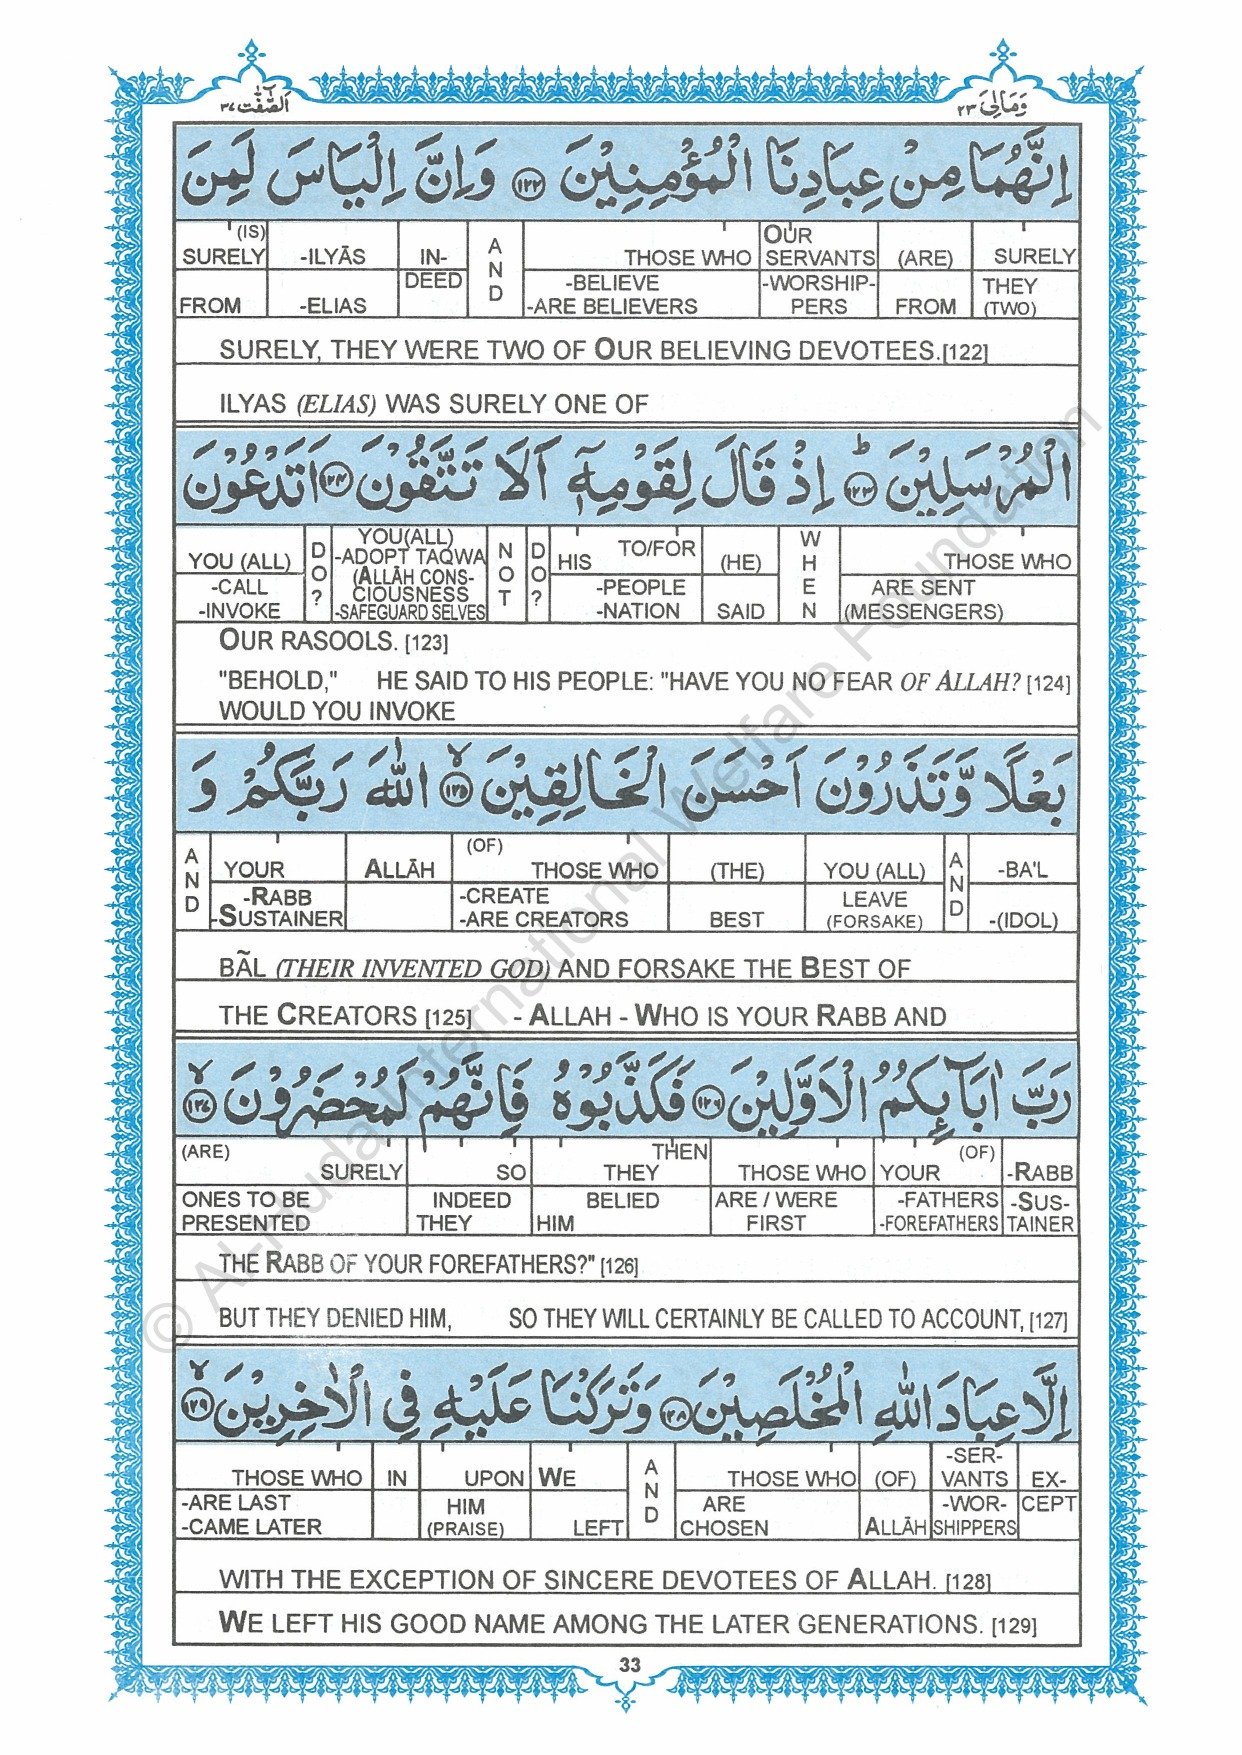 وَمَالِىَ ٢٣
اَلصّٰٓفّٰت ٣٧
اِنَّهُمَا مِنْ عِبَادِنَا الْمُؤْمِنِيْنَ ١٢٢ وَاِنَّ اِلْيَاسَ لَمِنَ
SURELY THEY (TWO)
(ARE) FROM
OUR SERVANTS -WORSHIPPERS
THOSE WHO -BELIEVE -ARE BELIEVERS
AND
IN-DEED
-ILYĀS -ELIAS
(IS) SURELY FROM
SURELY, THEY WERE TWO OF OUR BELIEVING DEVOTEES.[122]
ILYAS (ELIAS) WAS SURELY ONE OF
الْمُرْسَلِيْنَ ط ١٢٣ اِذْ قَالَ لِقَوْمِهٖٓ اَلَا تَتَّقُوْنَ ١٢٤ اَتَدْعُوْنَ
THOSE WHO ARE SENT (MESSENGERS)
WHEN
(HE) SAID
TO/FOR HIS -PEOPLE -NATION
DO?
NOT
YOU(ALL) -ADOPT TAQWA (ALLĀH CONS-CIOUSNESS -SAFEGUARD SELVES
DO?
YOU (ALL) -CALL -INVOKE
OUR RASOOLS. [123]
"BEHOLD," HE SAID TO HIS PEOPLE: "HAVE YOU NO FEAR OF ALLAH? [124]
WOULD YOU INVOKE
بَعْلًا وَّتَذَرُوْنَ اَحْسَنَ الْخَالِقِيْنَ لا ١٢٥ اللّٰهَ رَبَّكُمْ وَ
-BA'L -(IDOL)
AND
YOU (ALL) LEAVE (FORSAKE)
(THE) BEST
(OF) THOSE WHO -CREATE -ARE CREATORS
ALLĀH
YOUR -RABB -SUSTAINER
AND
BÃL (THEIR INVENTED GOD) AND FORSAKE THE BEST OF
THE CREATORS [125] - ALLAH - WHO IS YOUR RABB AND
رَبَّ اٰبَآئِكُمُ الْاَوَّلِيْنَ ١٢٦ فَكَذَّبُوْهُ فَاِنَّهُمْ لَمُحْضَرُوْنَ لا ١٢٧
-RABB -SUS-TAINER
(OF) YOUR -FATHERS -FOREFATHERS
THOSE WHO ARE / WERE FIRST
THEN THEY BELIED HIM
SO INDEED THEY
(ARE) SURELY ONES TO BE PRESENTED
THE RABB OF YOUR FOREFATHERS?" [126]
BUT THEY DENIED HIM, SO THEY WILL CERTAINLY BE CALLED TO ACCOUNT, [127]
اِلَّا عِبَادَ اللّٰهِ الْمُخْلَصِيْنَ ١٢٨ وَتَرَكْنَا عَلَيْهِ فِى الْاٰخِرِيْنَ لا ١٢٩
EX-CEPT
-SER-VANTS -WOR-SHIPPERS
(OF) ALLĀH
THOSE WHO ARE CHOSEN
AND
WE LEFT
UPON HIM (PRAISE)
IN
THOSE WHO -ARE LAST -CAME LATER
WITH THE EXCEPTION OF SINCERE DEVOTEES OF ALLAH. [128]
WE LEFT HIS GOOD NAME AMONG THE LATER GENERATIONS. [129]
33
© Al-Huda International Welfare Foundation